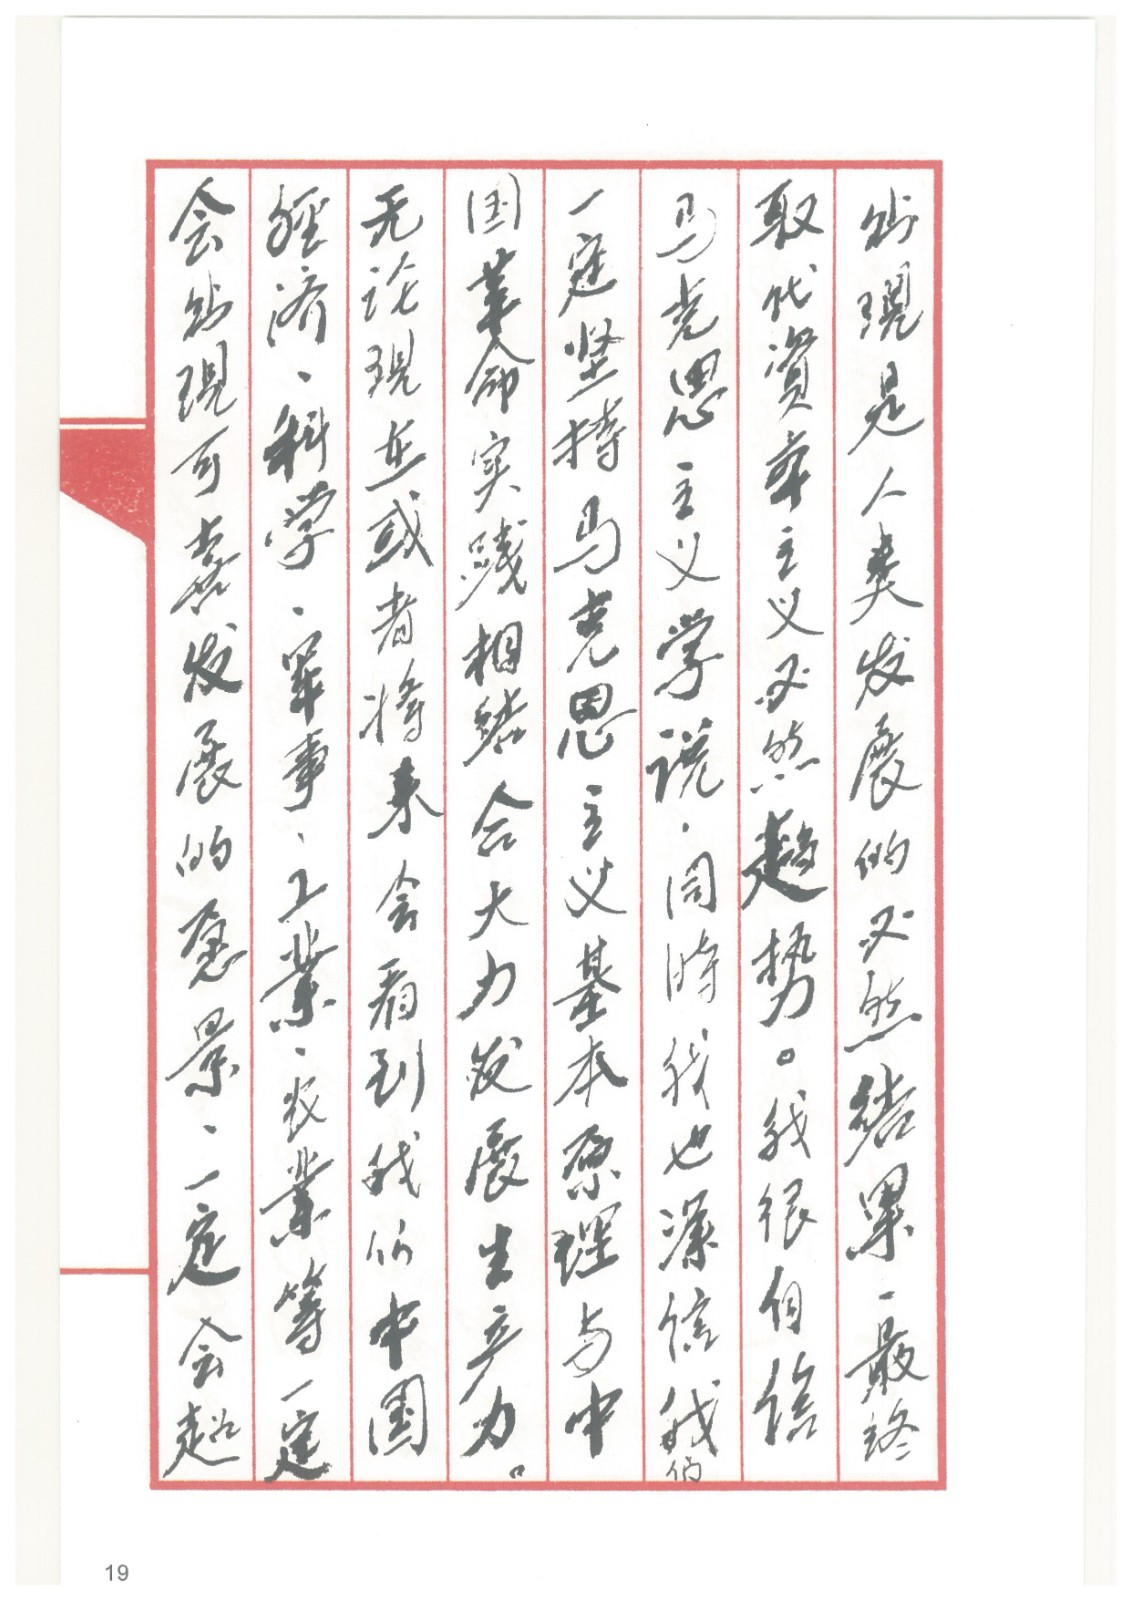 出现是人类发展的必然结果、最终
取代資本主义必然趋势。我很自信
马克思主义学说、同時我也深信我们
一定坚持马克思主义基本原理与中
国革命实践相结合大力发展生产力。
无论现在或者将来会看到我们中国
經济、科学、軍事、工業、农業等一定
会出现可喜发展的愿景、一定会超
19